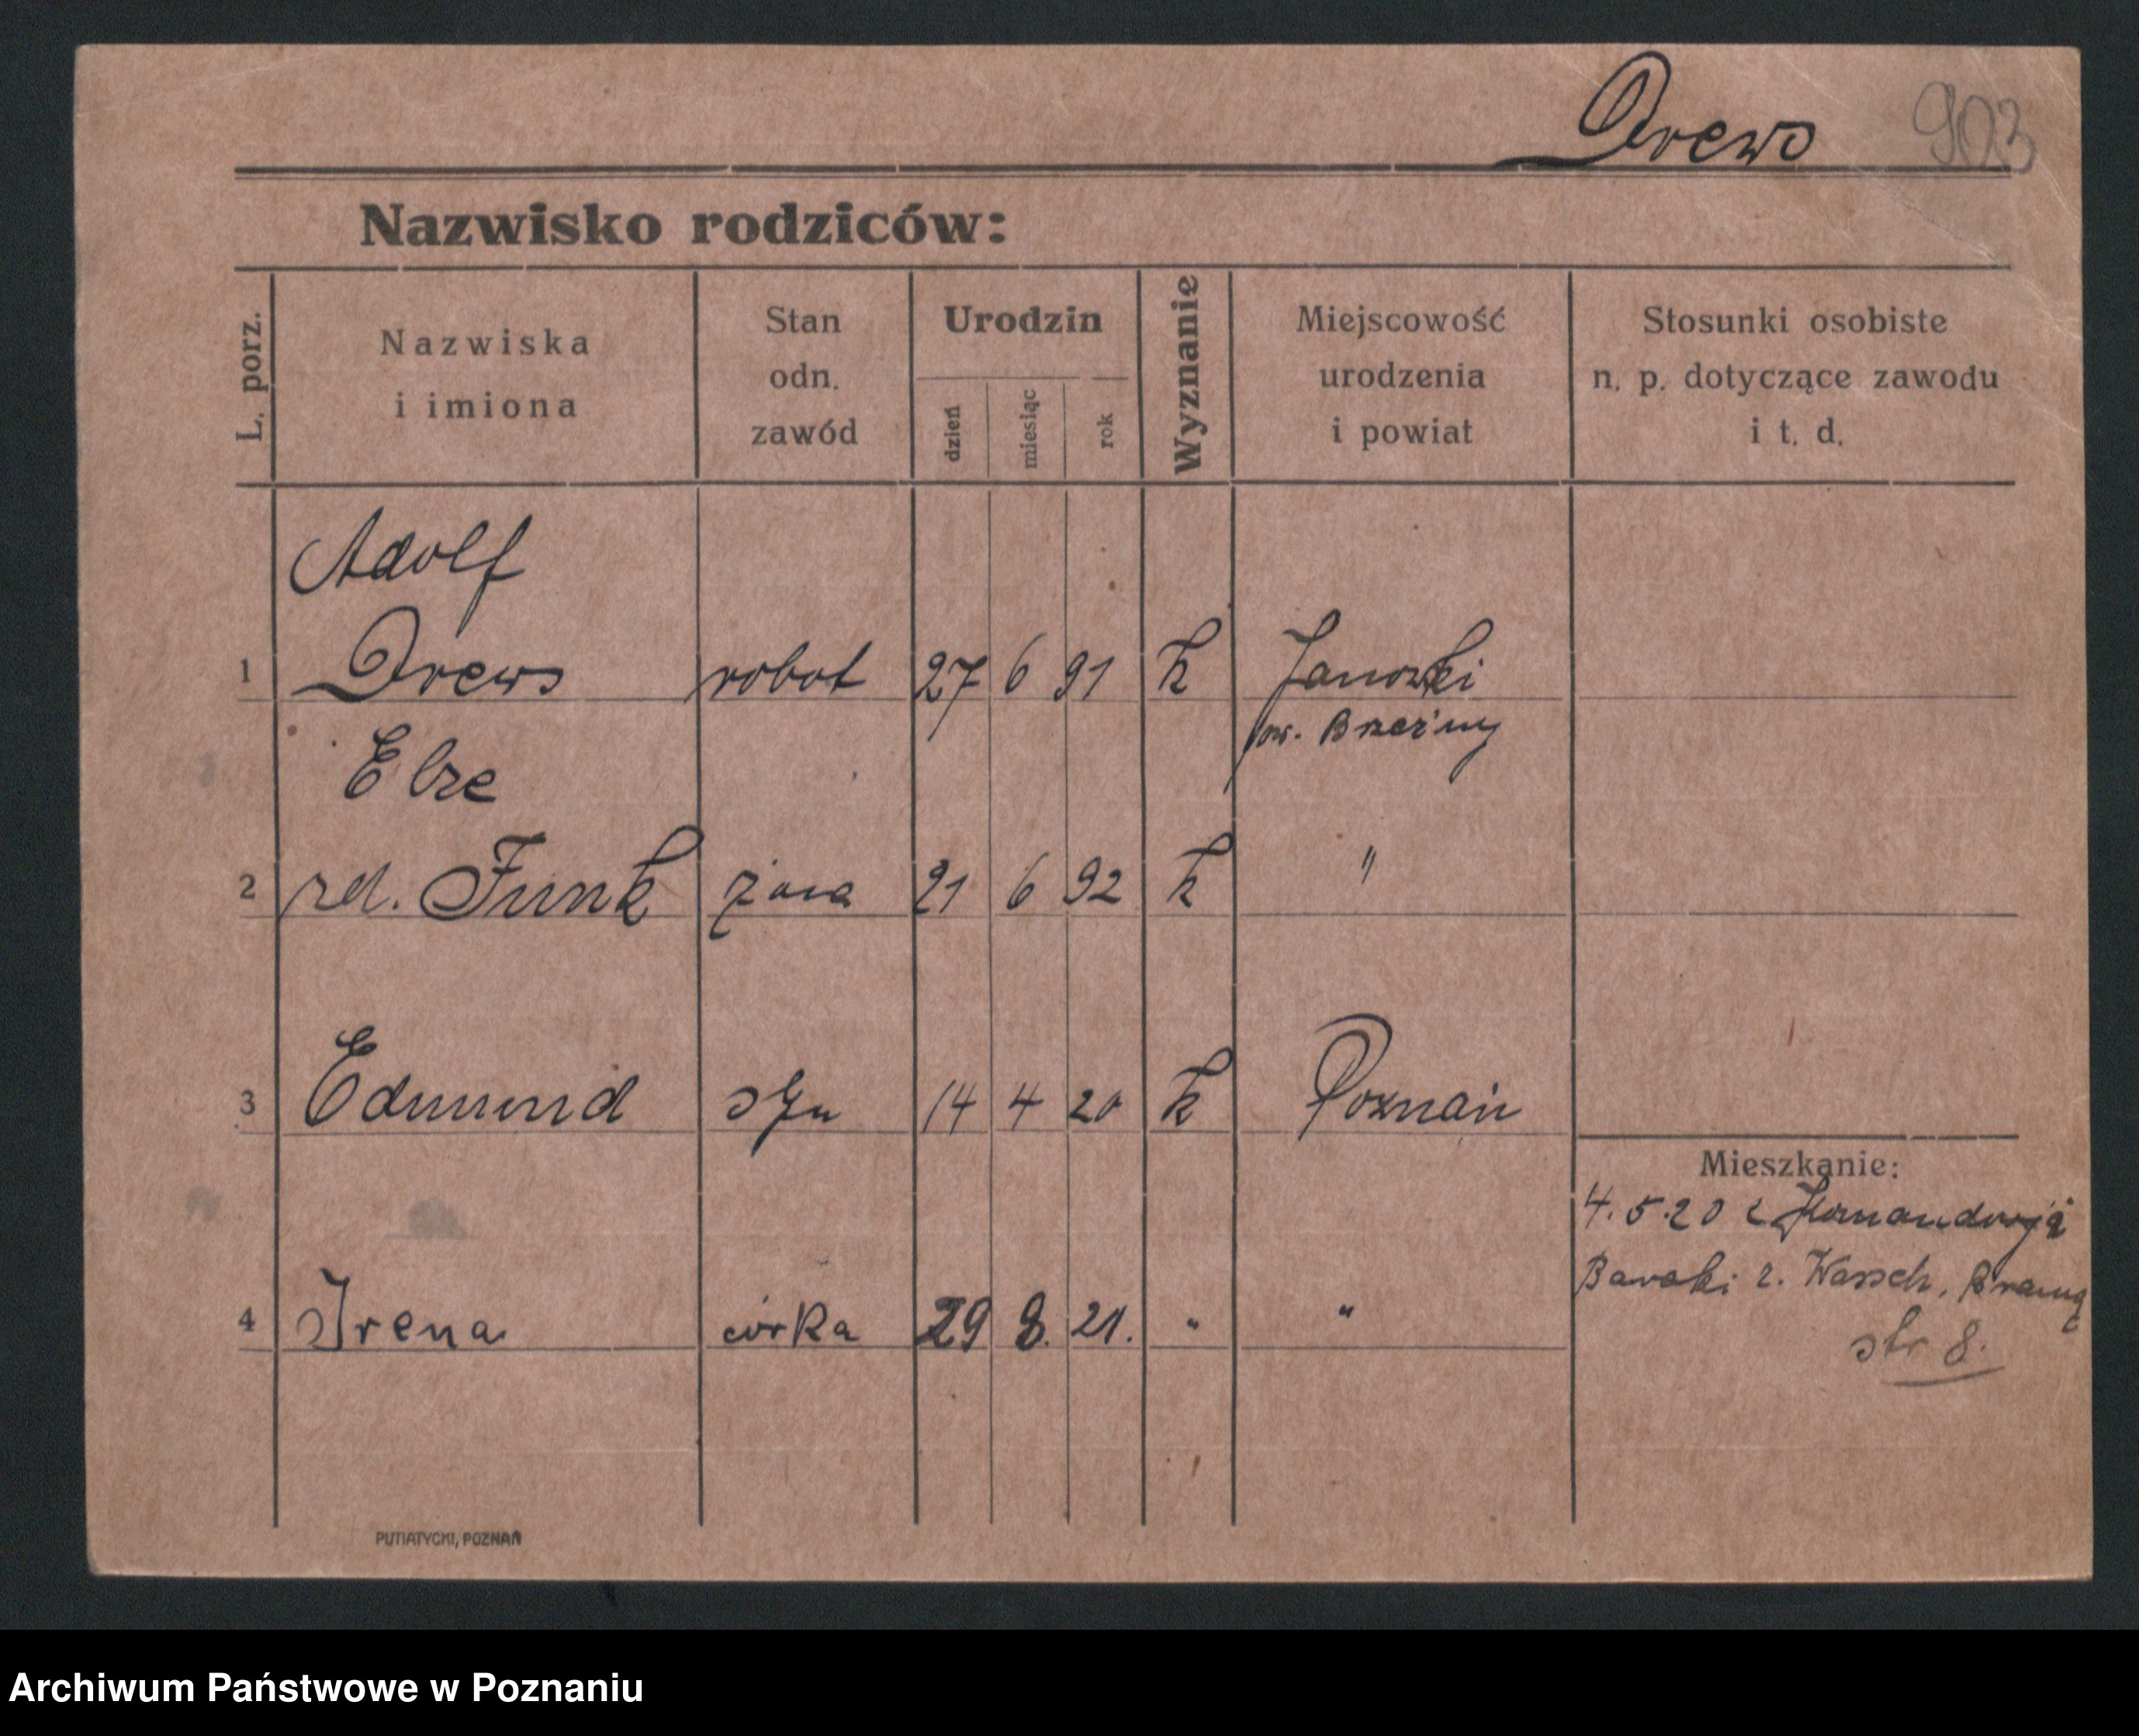 Drews 903
Nazwisko rodziców:
L. porz.
Nazwiska
i imiona
Stan
odn.
zawód
Urodzin
dzień
miesiąc
rok
Wyznanie
Miejscowość
urodzenia
i powiat
Stosunki osobiste
n. p. dotyczące zawodu
i t. d.
Adolf
1 Drews robot 27 6 91 k Janowki
pow. Brzeziny
Elze
2 zd. Funk żona 21 6 92 k "
3 Edmund syn 14 4 20 k Poznań
Mieszkanie:
4.5.20 z
Baraki z. Warsch. Bramą
4 Irena córka 29 8. 21. " "
str 8.
PUTIATYCKI, POZNAŃ
Archiwum Państwowe w Poznaniu